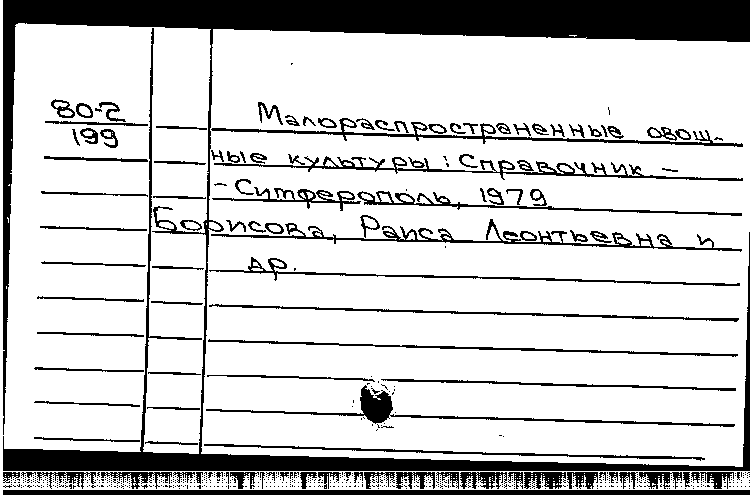 80-2
199
Малораспространенные овощ-
ные культуры: Справочник -
- Симферополь, 1979
Борисова, Раиса Леонтьевна и
др.